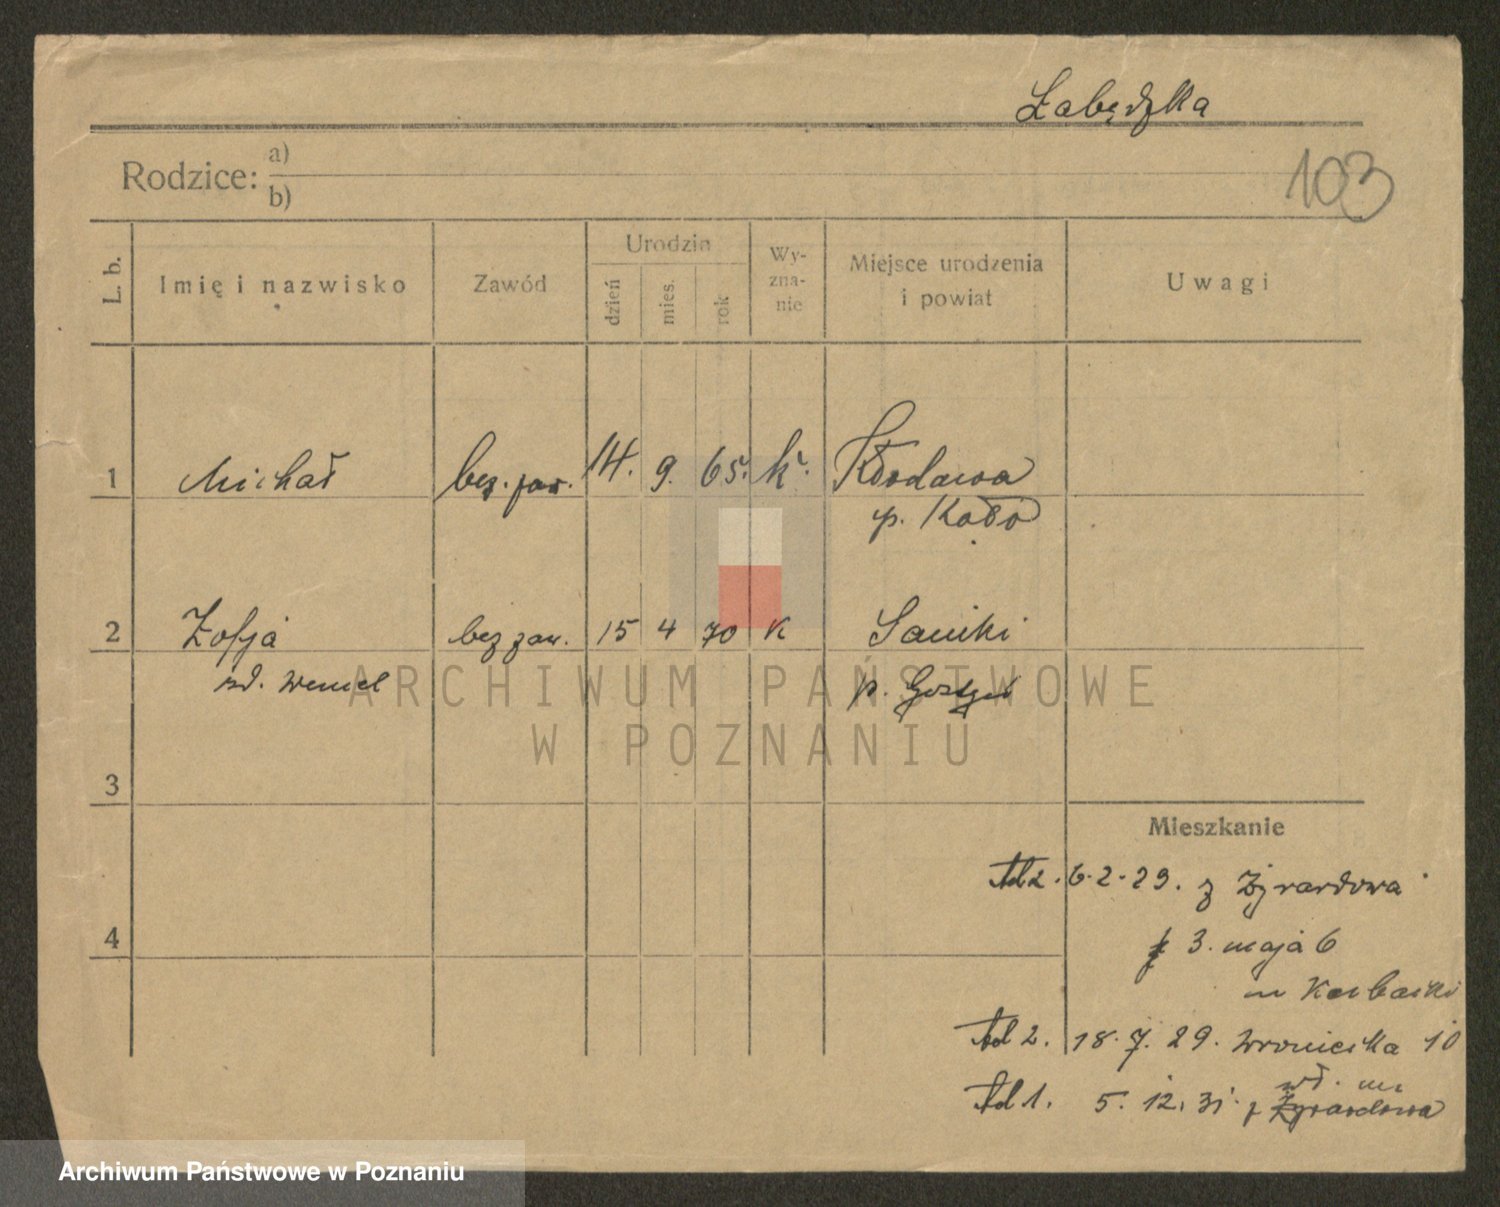 Łabędzka
103
Rodzice: a)
b)
L. b. Imię i nazwisko Zawód Urodzin dzień mies. rok Wy-zna-nie Miejsce urodzenia i powiat Uwagi
1 Michał bez. zaw. 14. 9. 65. k. Kłodawa
p. Koło
2 Zofja bez zaw. 15 4 70 K Sanniki
zd. Wencel p. Gostyń
ARCHIWUM PAŃSTWOWE
W POZNANIU
3
Mieszkanie
Ad 2. 6.2.29. z Żyrardowa
4
3. maja 6
Ad 2. 18.7.29. Wroniecka 10
wł. m.
Ad 1. 5. 12. 31. z Żyrardowa
Archiwum Państwowe w Poznaniu